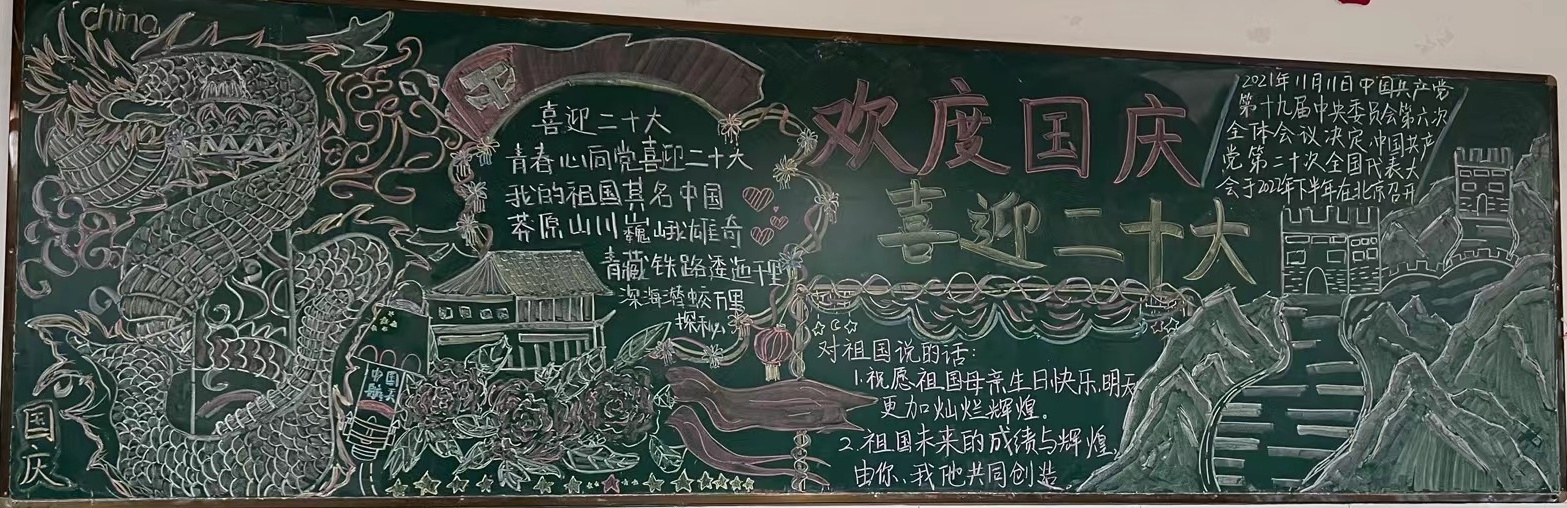 china
国庆
中国航天
喜迎二十大
青春心向党喜迎二十大
我的祖国其名中国
莽原山川巍峨雄奇
青藏铁路逶迤千里
深海潜蛟万里
探秘
欢度国庆
喜迎二十大
对祖国说的话:
1.祝愿祖国母亲生日快乐,明天
更加灿烂辉煌。
2.祖国未来的成绩与辉煌,
由你、我他共同创造。
2021年11月11日中国共产党
第十九届中央委员会第六次
全体会议决定,中国共产
党第二十次全国代表大
会于2022年下半年在北京召开